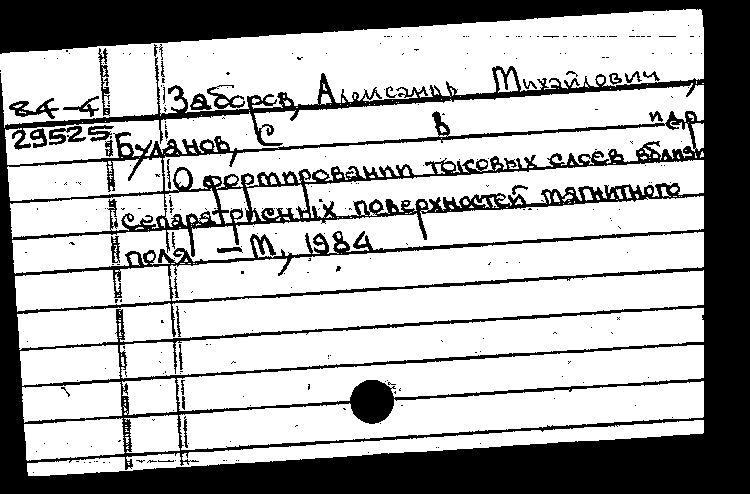 84-4
29525
Заборов, Александр Михайлович,
Буланов, С В и др
О формировании токовых слоев вблизи
сепаратрисных поверхностей магнитного
поля. – М, 1984.